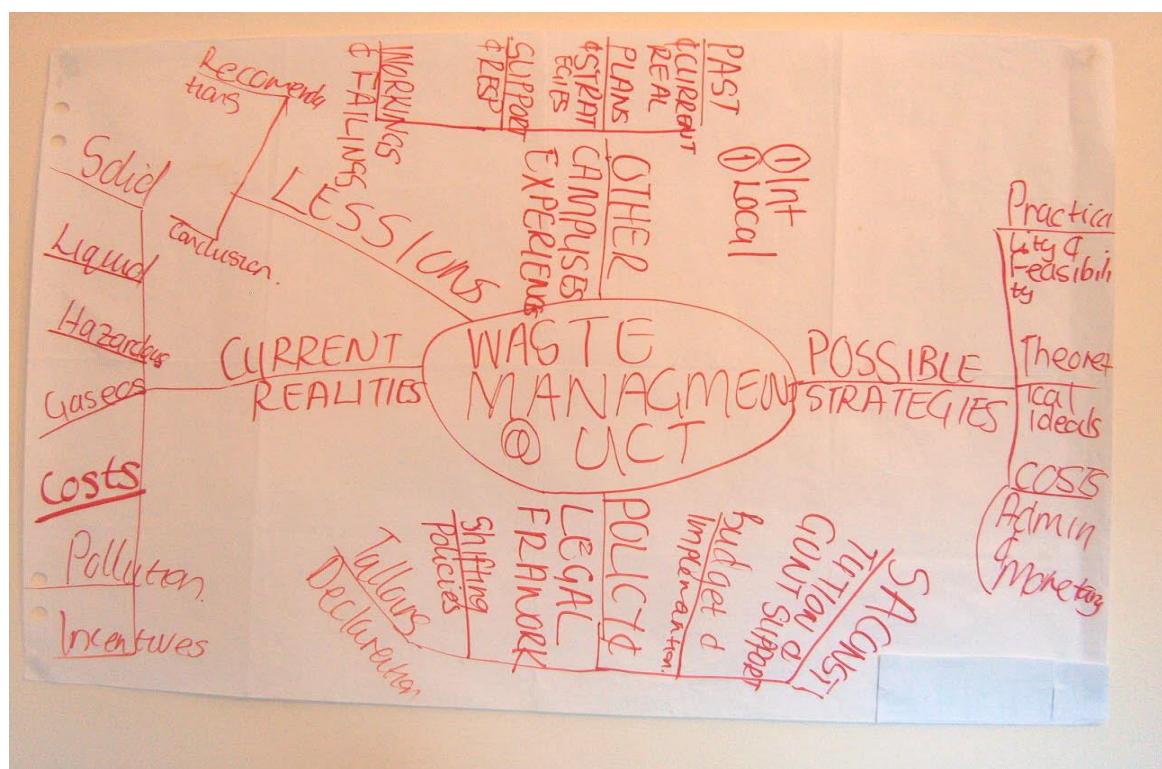 WASTE
MANAGMENT
@ UCT
CURRENT
REALITIES
Solid
Liquid
Hazardous
Gaseos
Costs
Pollution.
Incentives
LESSIONS
Recomenda
tions
Conclusion.
OTHER
CAMPUSES
EXPERIENCES
WORKINGS
& FAILINGS
SUPPORT
& RESP
PLANS
& STRAT
EGIES
PAST
& CURRENT
REAL
① Int
① Local
POSSIBLE
STRATEGIES
Practica
lity &
Feasibili
ty
Theoret
ical
Ideals
COSTS
Admin
&
Monetary
POLICY &
LEGAL
FRAMWORK
Tallours
Decleration
Shifting
Policies
Budget &
Implemantion.
SA CONSTI
TUTION &
GOVNT SUPPORT